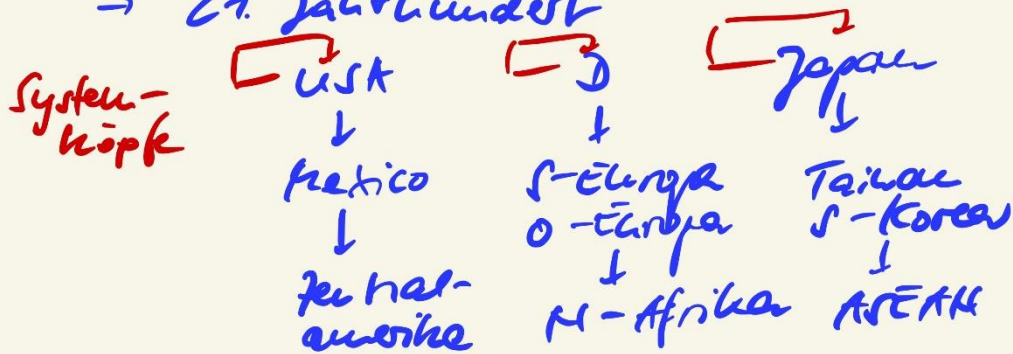 → 21. Jahrhundert
System-
köpfe
USA
↓
Mexico
↓
Zentral-
amerika
D
↓
S-Europa
O-Europa
↓
N-Afrika
Japan
↓
Taiwan
S-Korea
↓
ASEAN